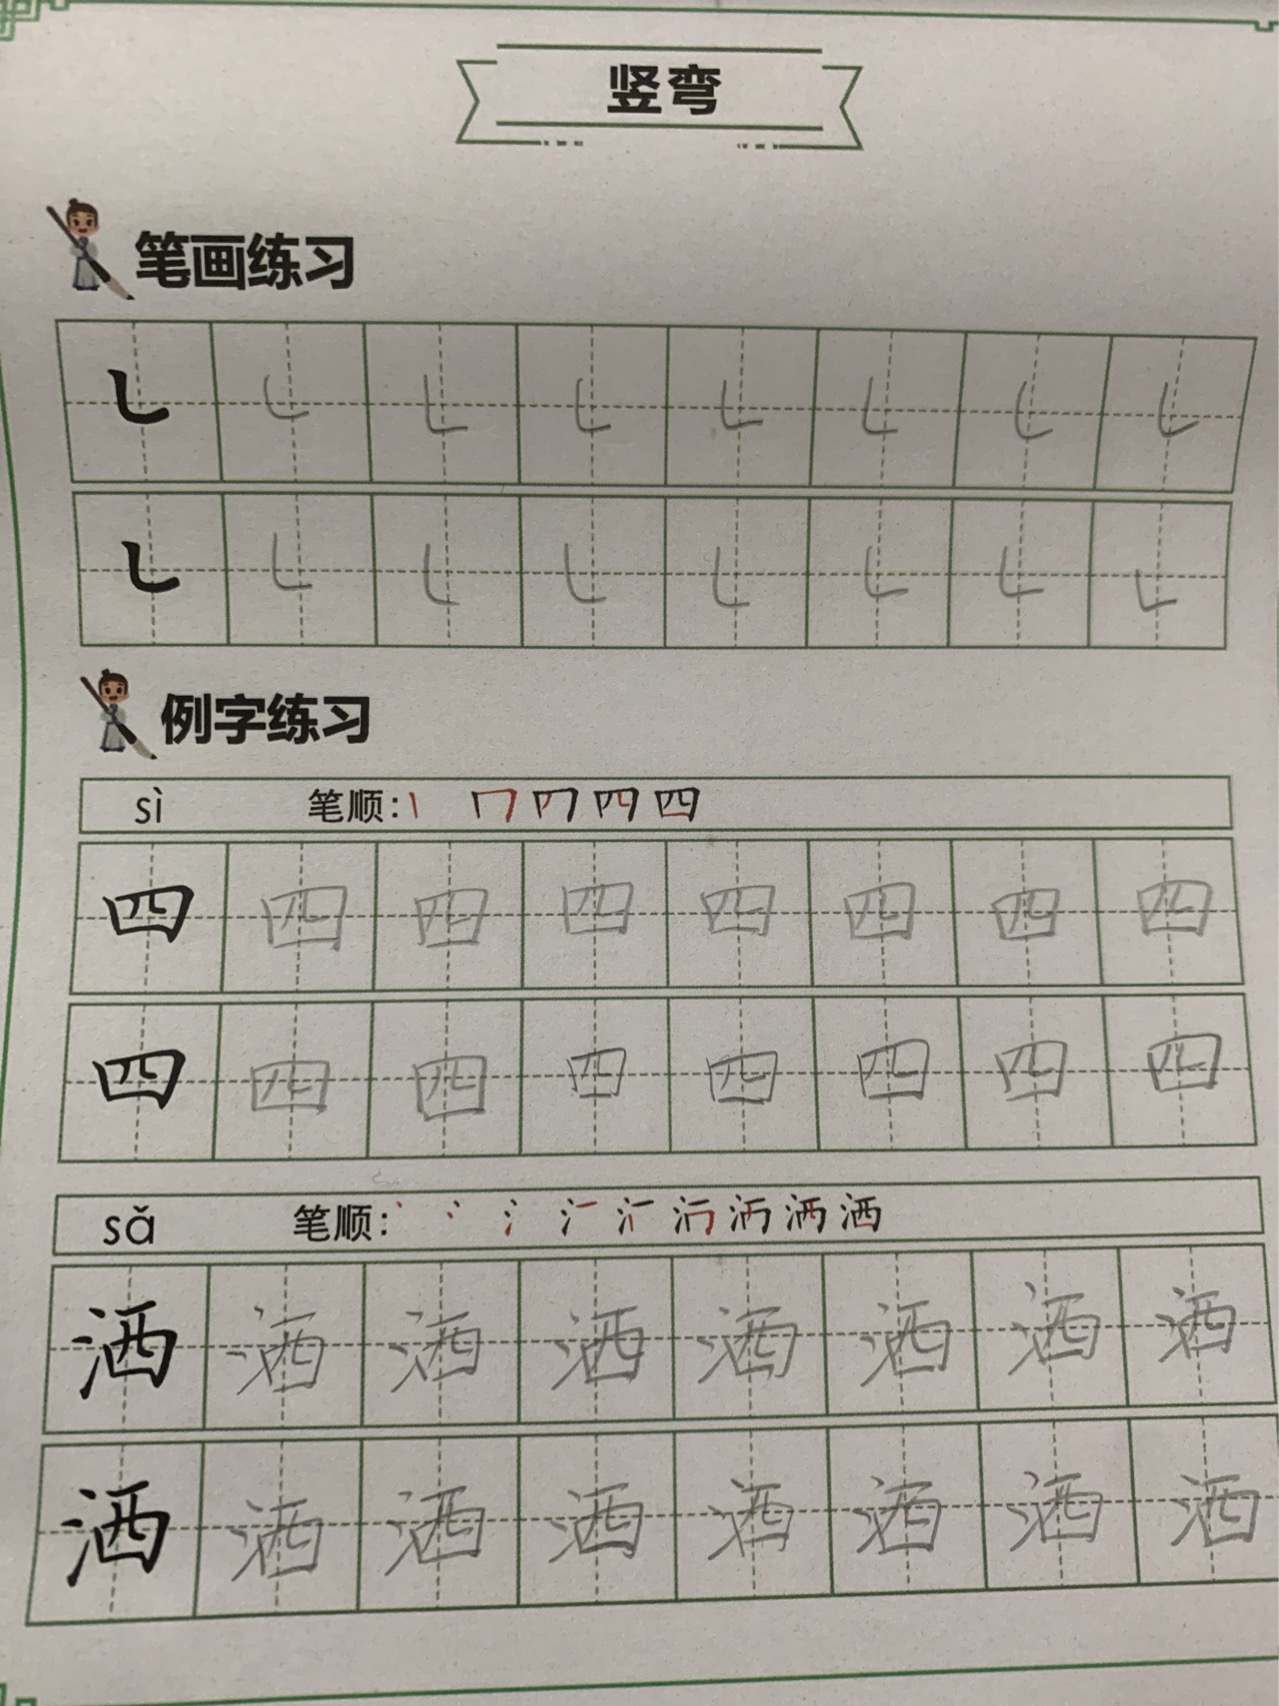 竖弯
笔画练习
㇄ ㇄ ㇄ ㇄ ㇄ ㇄ ㇄ ㇄
㇄ ㇄ ㇄ ㇄ ㇄ ㇄ ㇄ ㇄
例字练习
sì 笔顺: 四
四 四 四 四 四 四 四 四
四 四 四 四 四 四 四 四
sǎ 笔顺: 洒
洒 洒 洒 洒 洒 洒 洒 洒
洒 洒 洒 洒 洒 洒 洒 洒